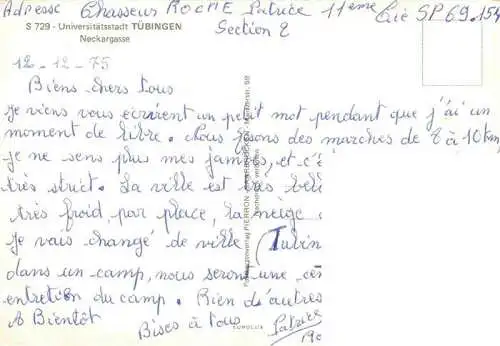 Adresse Chasseur ROCHE Patrice 11ème Cie SP 69.154
Section 2
S 729 - Universitätsstadt TÜBINGEN
Neckargasse
12-12-75
Biens chers tous
Je viens vous écrivent un petit mot pendant que j'ai un
moment de libre. Nous fesons des marches de 8 à 10 km
je ne sens plus mes jambes, et c'é
très strict. La ville est très bell
très froid, par place, la neige
Je vais changé de ville (Tubin
dans un camp, nous serons une cen
entretien du camp. Rien d'autres
A Bientôt
Bises à tous
Patrice